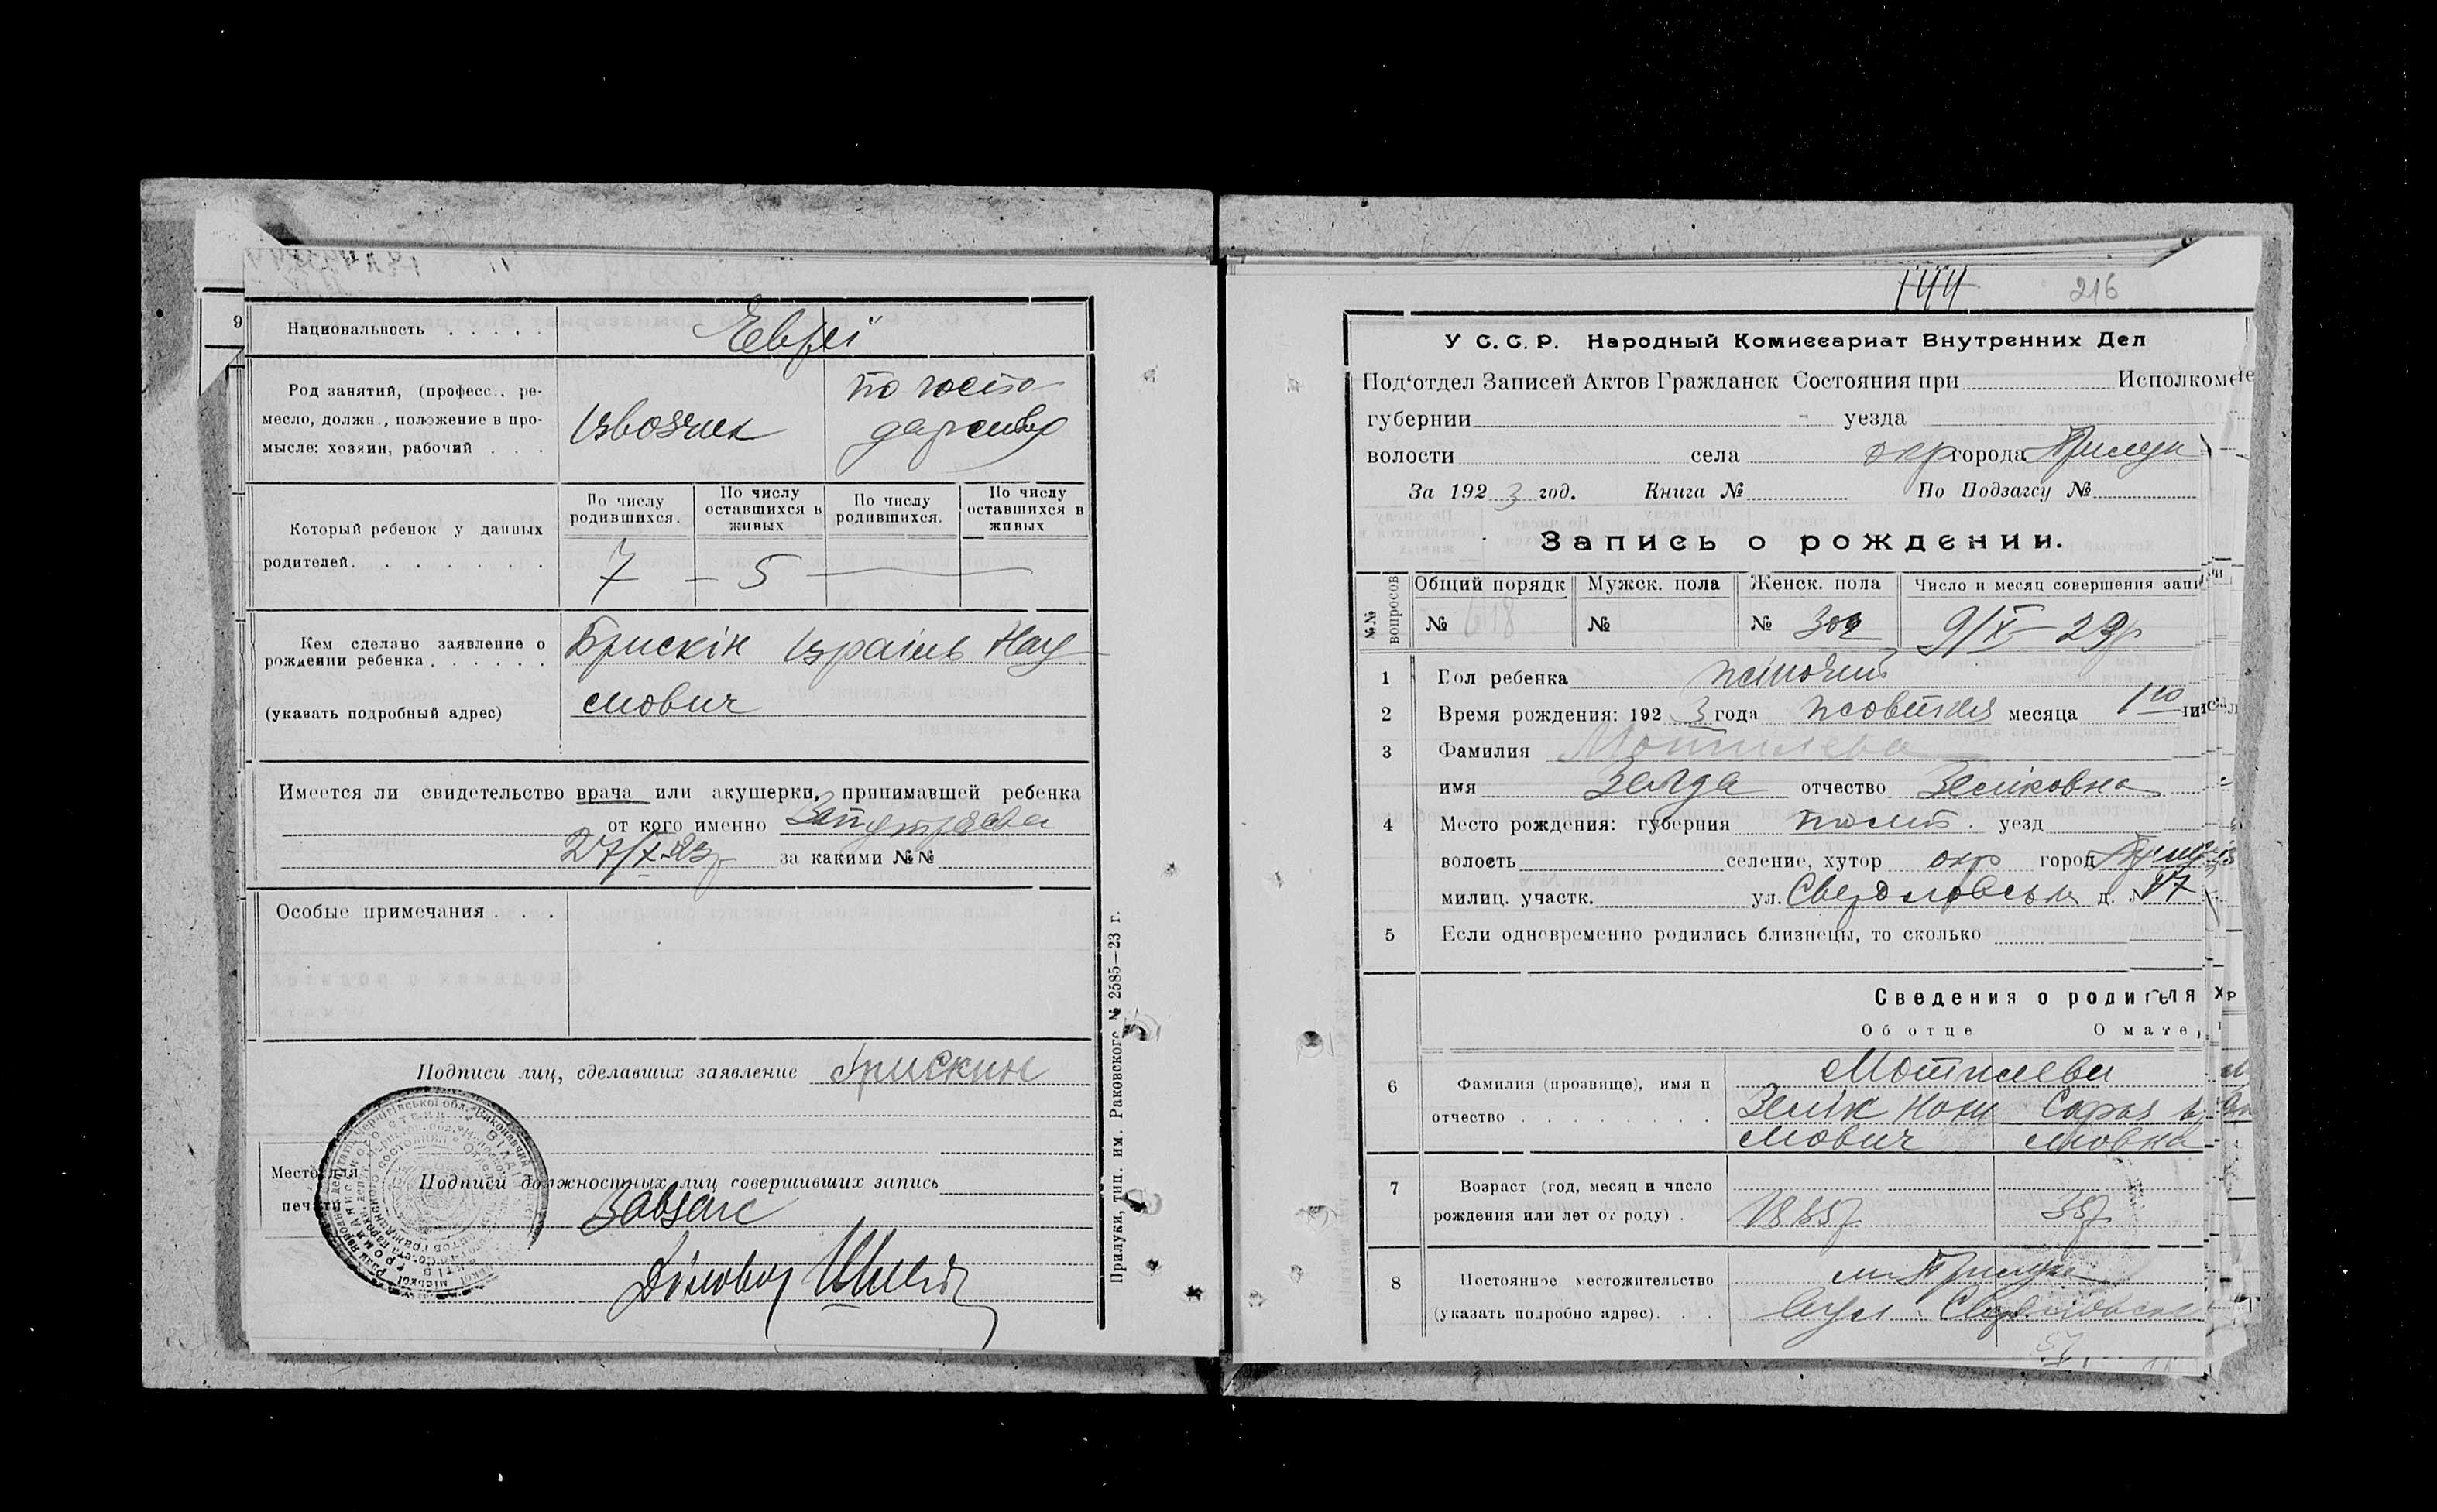 9
Национальность . . . . . Евреї
Род занятий, (професс., ре-
месло, должн., положение в про-
мысле: хозяин, рабочий . . .
Извозчик
по госпо
дарству
Который ребенок у данных
родителей. . . . . . . .
По числу родившихся.
По числу оставшихся в живых
По числу родившихся.
По числу оставшихся в живых
7 — 5
Кем сделано заявление о
рождении ребенка . . . . . .
(указать подробный адрес)
Брискін Израіль Нау
мович
Имеется ли свидетельство врача или акушерки, принимавшей ребенка
от кого именно
27/X-23р за какими №№
Особые примечания . . .
Подписи лиц, сделавших заявление Брискин
Место для
печати
Подписи должностных лиц совершивших запись
Завзагс
Діловод
Прилуки, тип. им. Раковского № 2585—23 г.
144
216
У С. С. Р. Народный Комиссариат Внутренних Дел
Под‘отдел Записей Актов Гражданск Состояния при Исполкоме
губернии - уезда
волости села окр города Прилуки
За 1923 год. Книга № По Подзагсу №
Запись о рождении.
№№ вопросов
Общий порядк
Мужск. пола
Женск. пола
Число и месяц совершения запи
№ 618
№
№ 302
9/X – 23р
1 Пол ребенка жіночий
2 Время рождения: 1923 года жовтня месяца 1го числ
3 Фамилия Мотилева
имя Зелда отчество Зеліковна
4 Место рождения: губерния Полт. уезд
волость селение, хутор окр город Прилуки
милиц. участк. ул. Свердловська д. 87
5 Если одновременно родились близнецы, то сколько
Сведения о родителях
Об отце О мате
6 Фамилия (прозвище), имя и
отчество . . . . . . . .
Мотилеви
Зелік Нохи
мович
Софья
мовна
7 Возраст (год, месяц и число
рождения или лет от роду) .
1885р
35р
8 Постоянное местожительство
(указать подробно адрес). . .
м. Прилуки
вул. Свердловська